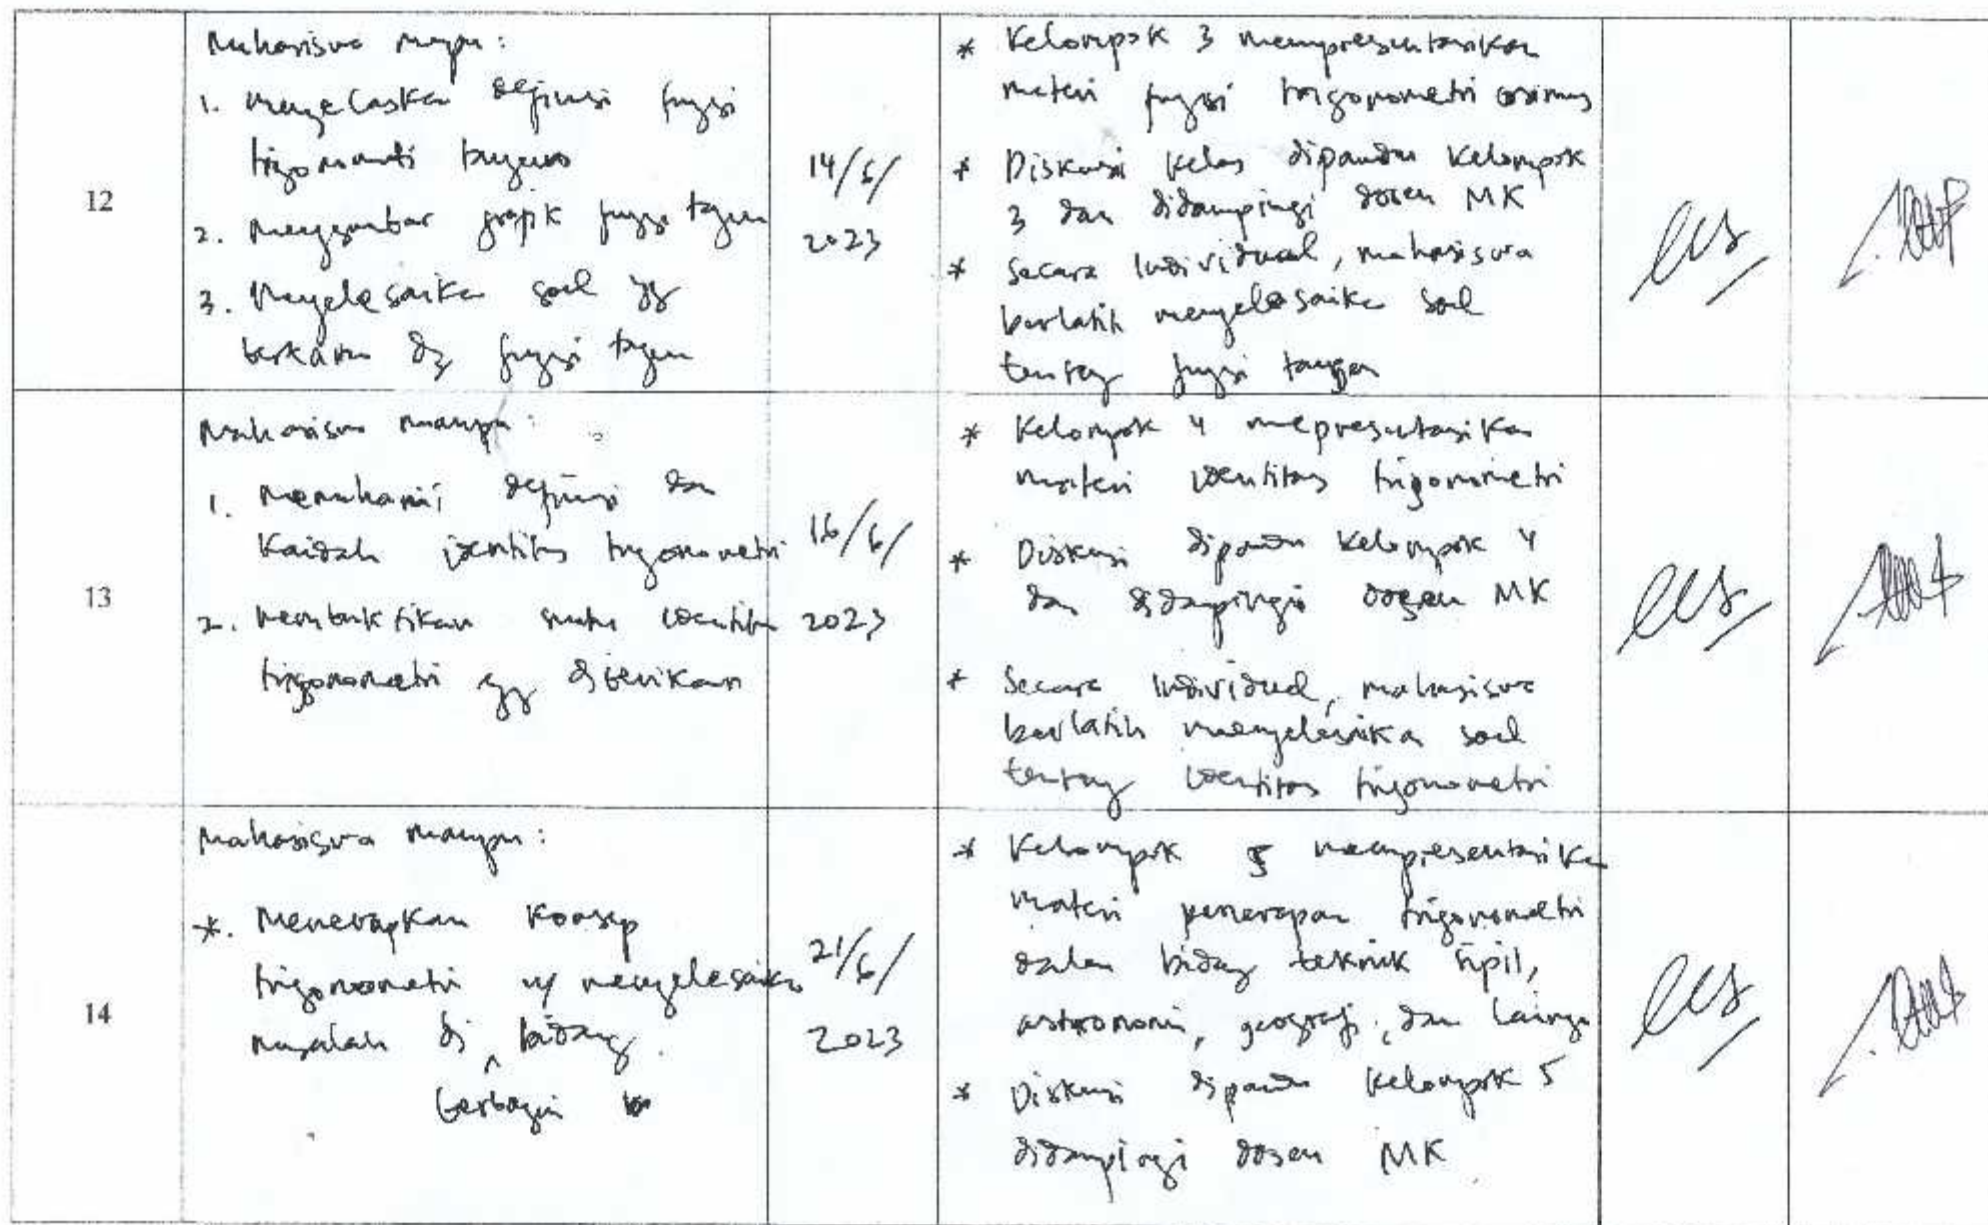 12
Mahasiswa mampu:
1. Menjelaskan definisi fungsi
trigonometri
2. Menggambar grafik fungsi tangen
3. Menyelesaikan soal yg
berkaitan dg fungsi tangen
14/6/
2023
* Kelompok 3 mempresentasikan
materi fungsi trigonometri
* Diskusi kelas dipandu kelompok
3 dan didampingi dosen MK
* Secara individual, mahasiswa
berlatih menyelesaikan soal
tentang fungsi tangen
13
Mahasiswa mampu:
1. Memahami definisi dan
kaidah identitas trigonometri
2. Membuktikan suatu identitas
trigonometri yg diberikan
16/6/
2023
* Kelompok 4 mepresentasikan
materi identitas trigonometri
* Diskusi dipandu kelompok 4
dan didampingi dosen MK
* Secara individual, mahasiswa
berlatih menyelesaikan soal
tentang identitas trigonometri
14
Mahasiswa mampu:
*. Menerapkan konsep
trigonometri u/ menyelesaikan
masalah di bidang
berbagai
21/6/
2023
* Kelompok 5 mempresentasikan
materi penerapan trigonometri
dalam bidang teknik sipil,
astronomi, geografi, dan lainnya
* Diskusi dipandu kelompok 5
didampingi dosen MK